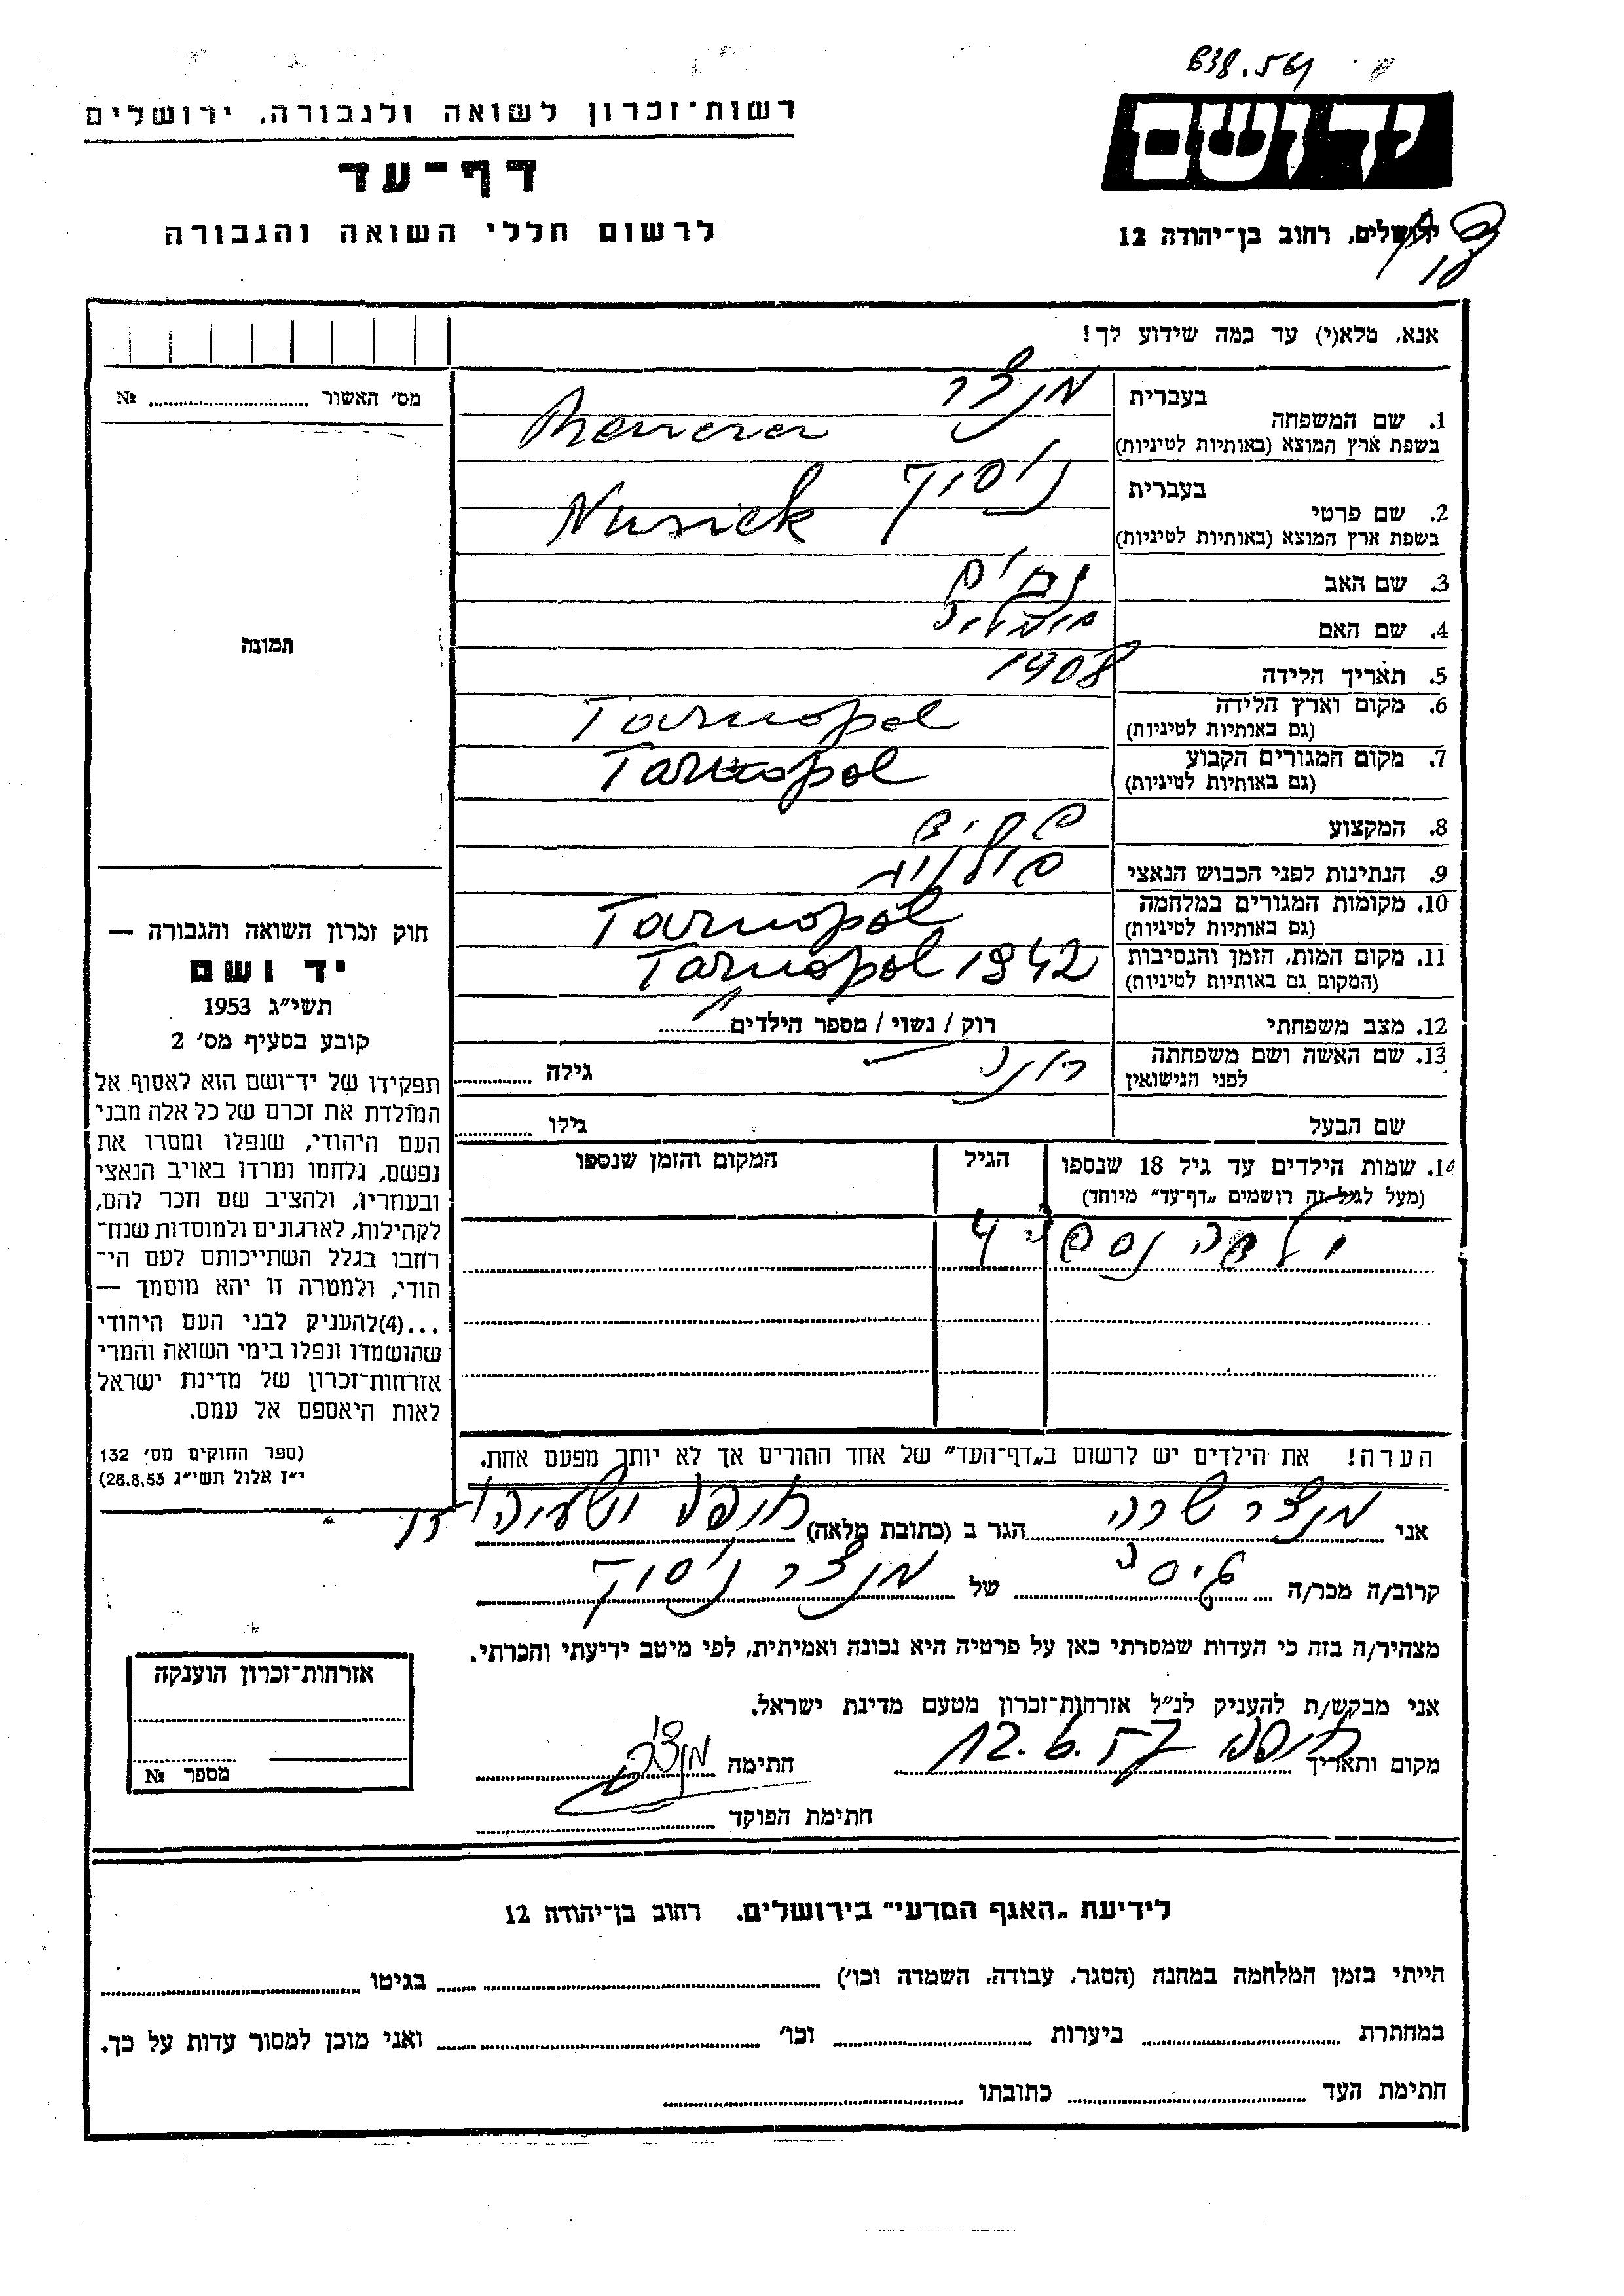 638.561
רשות-זכרון לשואה ולגבורה, ירושלים
יד ושם
דף-עד
לרשום חללי השואה והגבורה
ירושלים, רחוב בן-יהודה 12
אנא, מלא(י) עד כמה שידוע לך!
מס׳ האשור № 
1. שם המשפחה בעברית מנצר
בשפת ארץ המוצא (באותיות לטיניות)
2. שם פרטי בעברית ניסיך
בשפת ארץ המוצא (באותיות לטיניות) Nusiek
3. שם האב נחום
4. שם האם
5. תאריך הלידה 1908
6. מקום וארץ הלידה (גם באותיות לטיניות) Tarnopol
7. מקום המגורים הקבוע (גם באותיות לטיניות) Tarnopol
8. המקצוע פקיד
9. הנתינות לפני הכבוש הנאצי פולנית
10. מקומות המגורים במלחמה (גם באותיות לטיניות) Tarnopol
11. מקום המות, הזמן והנסיבות (המקום גם באותיות לטיניות) Tarnopol 1942
12. מצב משפחתי רוק / נשוי / מספר הילדים 1
13. שם האשה ושם משפחתה לפני הנישואין גילה
שם הבעל גילו
14. שמות הילדים עד גיל 18 שנספו הגיל המקום והזמן שנספו
(מעל לגיל זה רושמים „דף-עד״ מיוחד)
ילדה 4
הערה! את הילדים יש לרשום ב„דף-העד״ של אחד ההורים אך לא יותר מפעם אחת.
אני מנצר שרה הגר ב (כתובת מלאה) חיפה
קרוב/ה מכר/ה גיסה של מנצר ניסיך
מצהיר/ה בזה כי העדות שמסרתי כאן על פרטיה היא נכונה ואמיתית, לפי מיטב ידיעתי והכרתי.
אני מבקש/ת להעניק לנ״ל אזרחות-זכרון מטעם מדינת ישראל.
מקום ותאריך חיפה 12.6.57 חתימה
חתימת הפוקד
תמונה
חוק זכרון השואה והגבורה —
יד ושם
תשי״ג 1953
קובע בסעיף מס׳ 2
תפקידו של יד-ושם הוא לאסוף אל
המולדת את זכרם של כל אלה מבני
העם היהודי, שנפלו ומסרו את
נפשם, נלחמו ומרדו באויב הנאצי
ובעוזריו, ולהציב שם וזכר להם,
לקהילות, לארגונים ולמוסדות שנח-
רבו בגלל השתייכותם לעם הי-
הודי, ולמטרה זו יהא מוסמך —
...(4)להעניק לבני העם היהודי
שהושמדו ונפלו בימי השואה והמרי
אזרחות-זכרון של מדינת ישראל
לאות היאספם אל עמם.
(ספר החוקים מס׳ 132
י״ז אלול תשי״ג 28.8.53)
אזרחות-זכרון הוענקה
מספר №
לידיעת „האגף המדעי״ בירושלים, רחוב בן-יהודה 12
הייתי בזמן המלחמה במחנה (הסגר, עבודה, השמדה וכו׳) בגיטו
במחתרת ביערות וכו׳ ואני מוכן למסור עדות על כך.
חתימת העד כתובתו